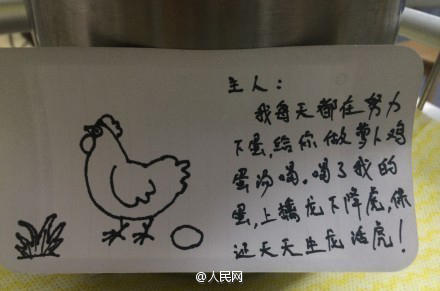 主人：
我每天都在努力
下蛋,给你做萝卜鸡
蛋汤喝。喝了我的
蛋,上擒龙下降虎,保
证天天生龙活虎！
@人民网